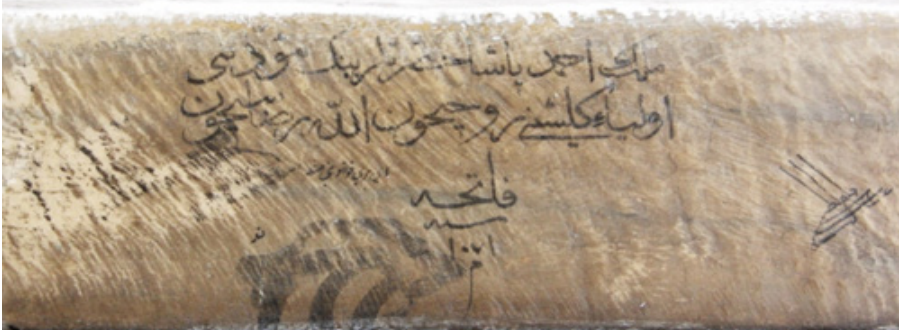 ملك احمد پاشا حضرتلرينك مؤذنى
اولياء كلشنى روحيچون الله رضاسيچون
فاتحه
سنه
١٠٧١